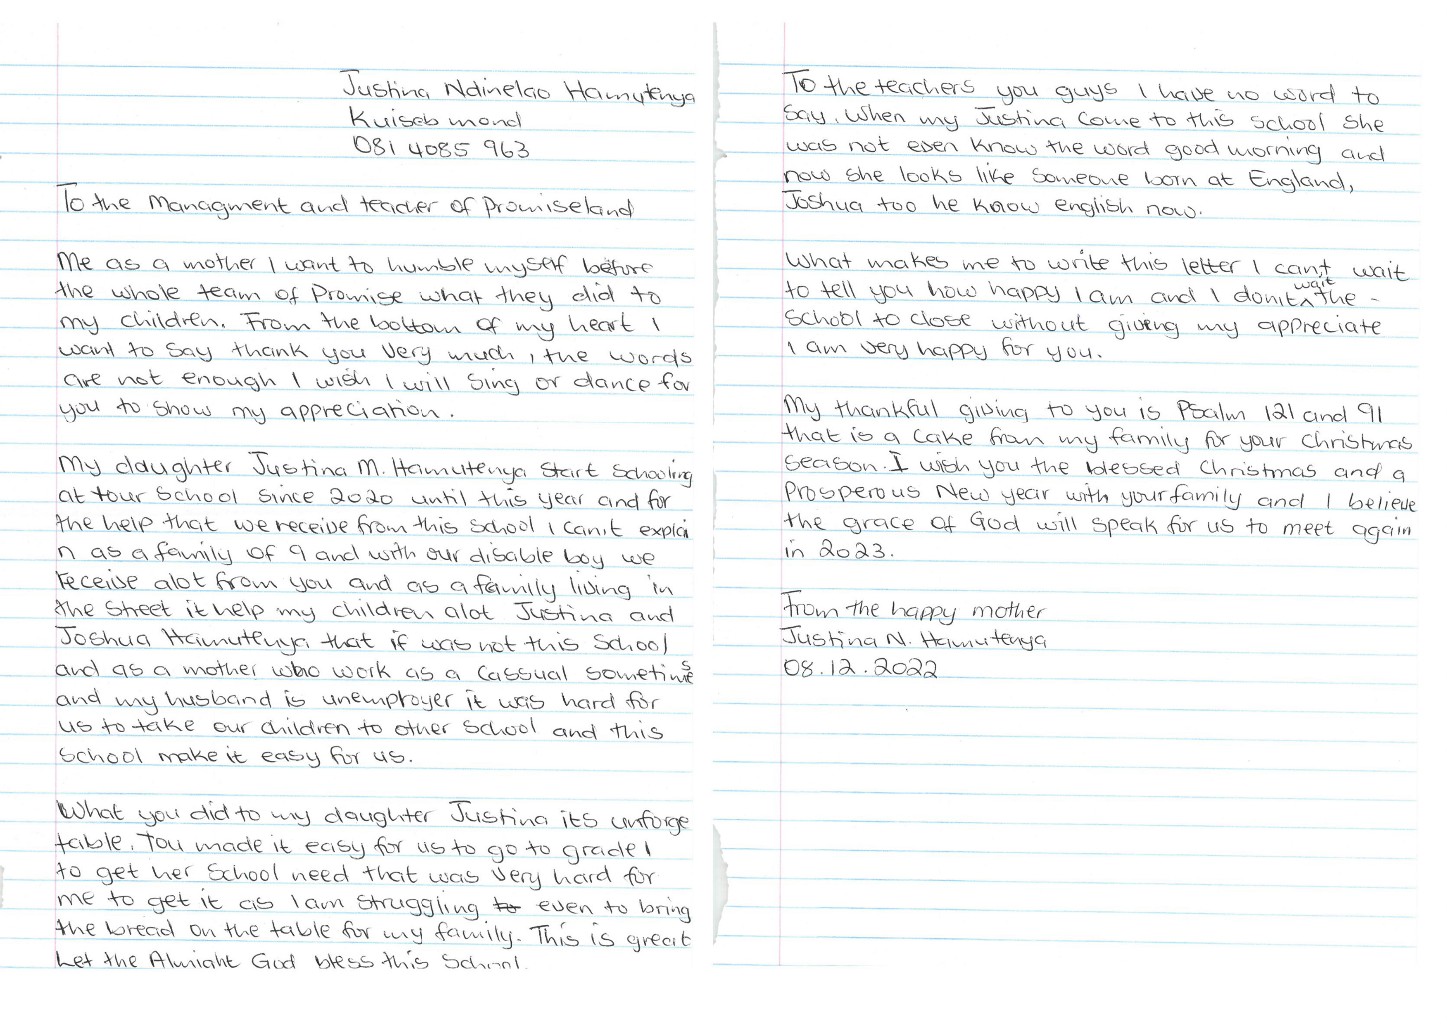 Justina Ndinelao Hamutenya
Kuiseb mond
081 4085 963
To the Managment and teacher of Promiseland
Me as a mother I want to humble myself before
the whole team of Promise what they did to
my children. From the bottom of my heart I
want to say thank you very much, the words
are not enough I wish I will sing or dance for
you to show my appreciation.
My daughter Justina M. Hamutenya Start Schooling
at your School since 2020 until this year and for
the help that we receive from this School I can't explai
n as a family of 9 and with our disable boy we
receive alot from you and as a family living in
the street it help my children alot Justina and
Joshua Hamutenya that if was not this School
and as a mother who work as a Cassual sometimes
and my husband is unemployer it was hard for
us to take our children to other School and this
School make it easy for us.
What you did to my daughter Justina its unforge
table. You made it easy for us to go to grade 1
to get her School need that was very hard for
me to get it as I am struggling to even to bring
the bread on the table for my family. This is great
Let the Almight God bless this School.
To the teachers you guys I have no word to
say. When my Justina come to this school she
was not even know the word good morning and
now she looks like someone born at England,
Joshua too he know english now.
What makes me to write this letter I can't wait
to tell you how happy I am and I don't wait the -
School to close without giving my appreciate
I am very happy for you.
My thankful giving to you is Psalm 121 and 91
that is a cake from my family for your Christmas
season. I wish you the blessed Christmas and a
Prosperous New year with your family and I believe
the grace of God will speak for us to meet again
in 2023.
From the happy mother
Justina N. Hamutenya
08.12.2022